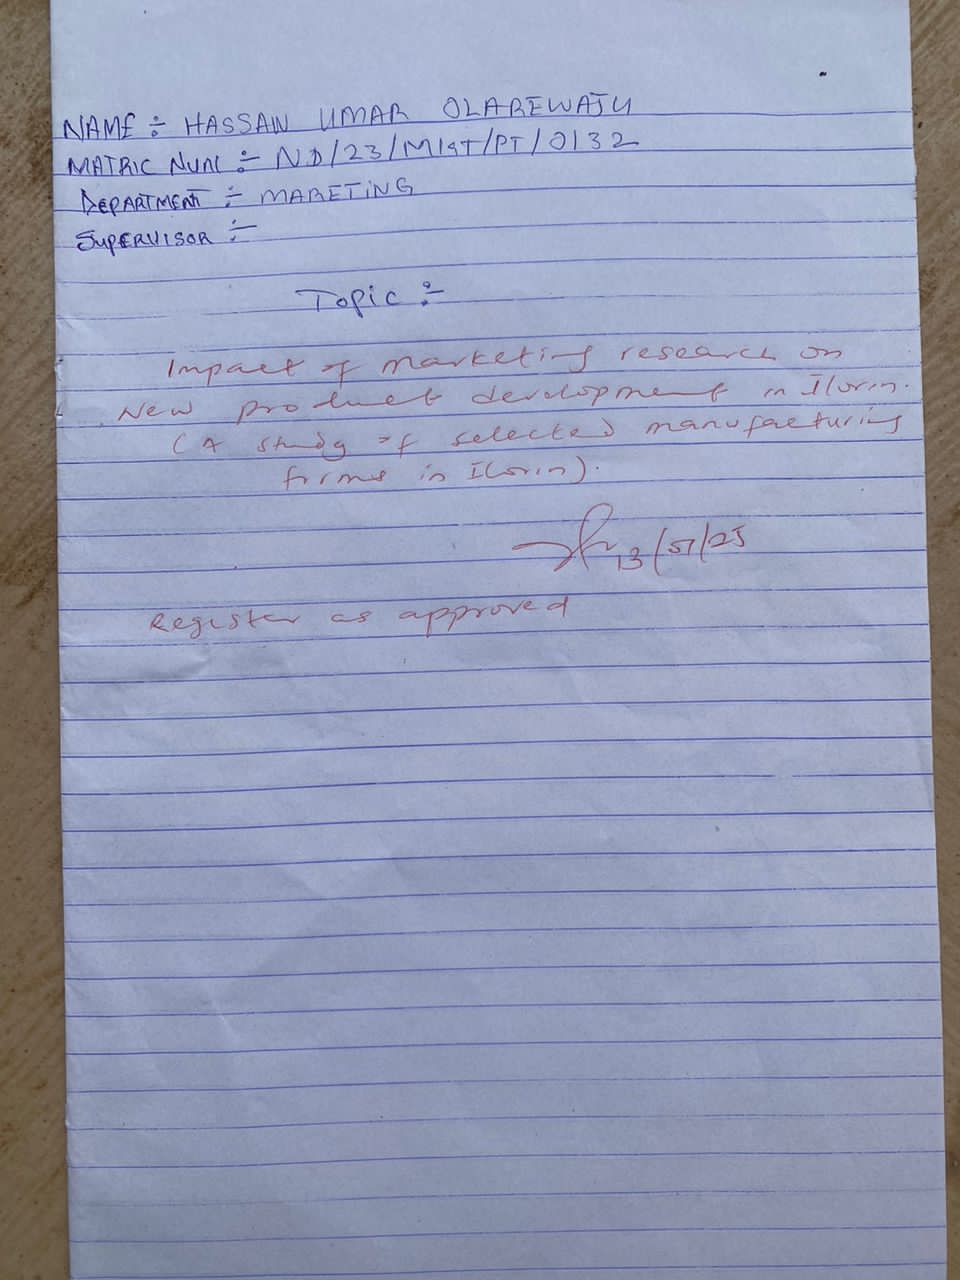 NAME ÷ HASSAN UMAR OLAREWAJU
MATRIC NUM ÷ ND/23/MKT/PT/0132
DEPARTMENT ÷ MARETING
SUPERVISOR ÷
Topic ÷
Impact of marketing research on
New product development in Ilorin.
(A study of selected manufacturing
firms in Ilorin).
Register as approved